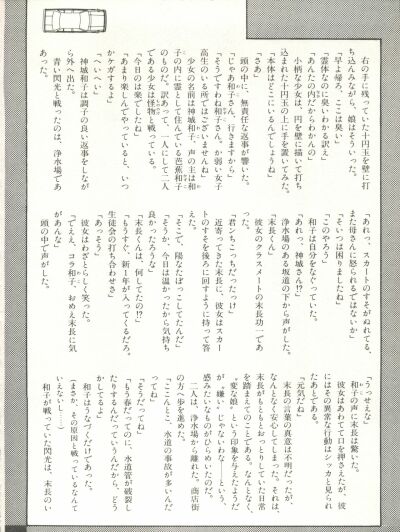 右の手に残っていた十円玉を壁に打
ち込みながら、娘はそういった。
「早よ帰ろ、ここは臭い」
霊体なのに臭いわかる訳ぇ
「あんたの内だからわかんの」
小柄な少女は、円を壁に描いて打ち
込まれた十円玉の上に手を置いてみた。
「本体はどこにいるんでしょうね」
「さあ」
頭の中に、無責任な返事が響いた。
「じゃあ和子さん、行きますから」
「そうですわね和子さん、か弱い女子
高生のいる所ではございませんね」
少女の名前は神城和子、声の主は和
子の内に霊として住んでいる芭蕉和子
のものだ。訳あって、一人にして二人
である少女は怪物と戦っている。
「今日のは楽でしたね」
「あまり楽しんでやっていると、いつ
かケガするよ」
「へいへい」
神城和子は調子の良い返事をしなが
ら外へ出た。
青い閃光と戦ったのは、浄水場であ
あった。
「あれっ、スカートのすそがぬれてる、
また母さんに怒られるではないか」
「そいつは困りましたね」
「このやろう」
和子は自分をなぐっていた。
「あれっ、神城さん!?」
浄水場のある坂道の下から声がした。
「末長くん」
彼女のクラスメートの末長功一であ
った。
「君ンちこっちだったっけ」
近寄ってきた末長に、彼女はスカー
トのすそを後ろに回すように持って答
えた。
「そこで、陽なたぼっこしてんだ」
「そうか、今日は温かったから気持ち
良かったろうな」
「末長くんは、何してたの!?」
「もうすぐ、新1年が入ってくるだろ。
生徒会の打ち合わせさ」
「あっそう」
彼女はわざとらしく笑った。
「てえぇ、コラ和子、おめえ末長に気
があんな」
頭の中で声がした。
「うっせえな」
和子の声に末長は驚いた。
彼女はあわてて口を押さえたが、彼
にはその異常な行動はシッカと見られ
たあとである。
「元気だね」
末長の言葉の真意は不明だったが、
なんとなく安心してしまった。それは、
末長がもともとおっとりしていた日常
を踏まえてのことである。なんとなく、
〝変な娘〟という印象を与えたようだ
が〝嫌い〟じゃないわな——という、
感みたいなものがひらめいたのだ。
二人は、浄水場から離れた。商店街
の方へ歩を進めた。
「ここんとこ、水道の事故が多いんだ
ってね」
「そうだってね」
「もう春だってのに、水道管が破裂し
たりするんだっていうんだから、どう
かしてるよ」
和子はうなづくだけであった。
(まさか、その原因と戦っているなんて
いえないし……)
和子が戦っていた閃光は、末長のい